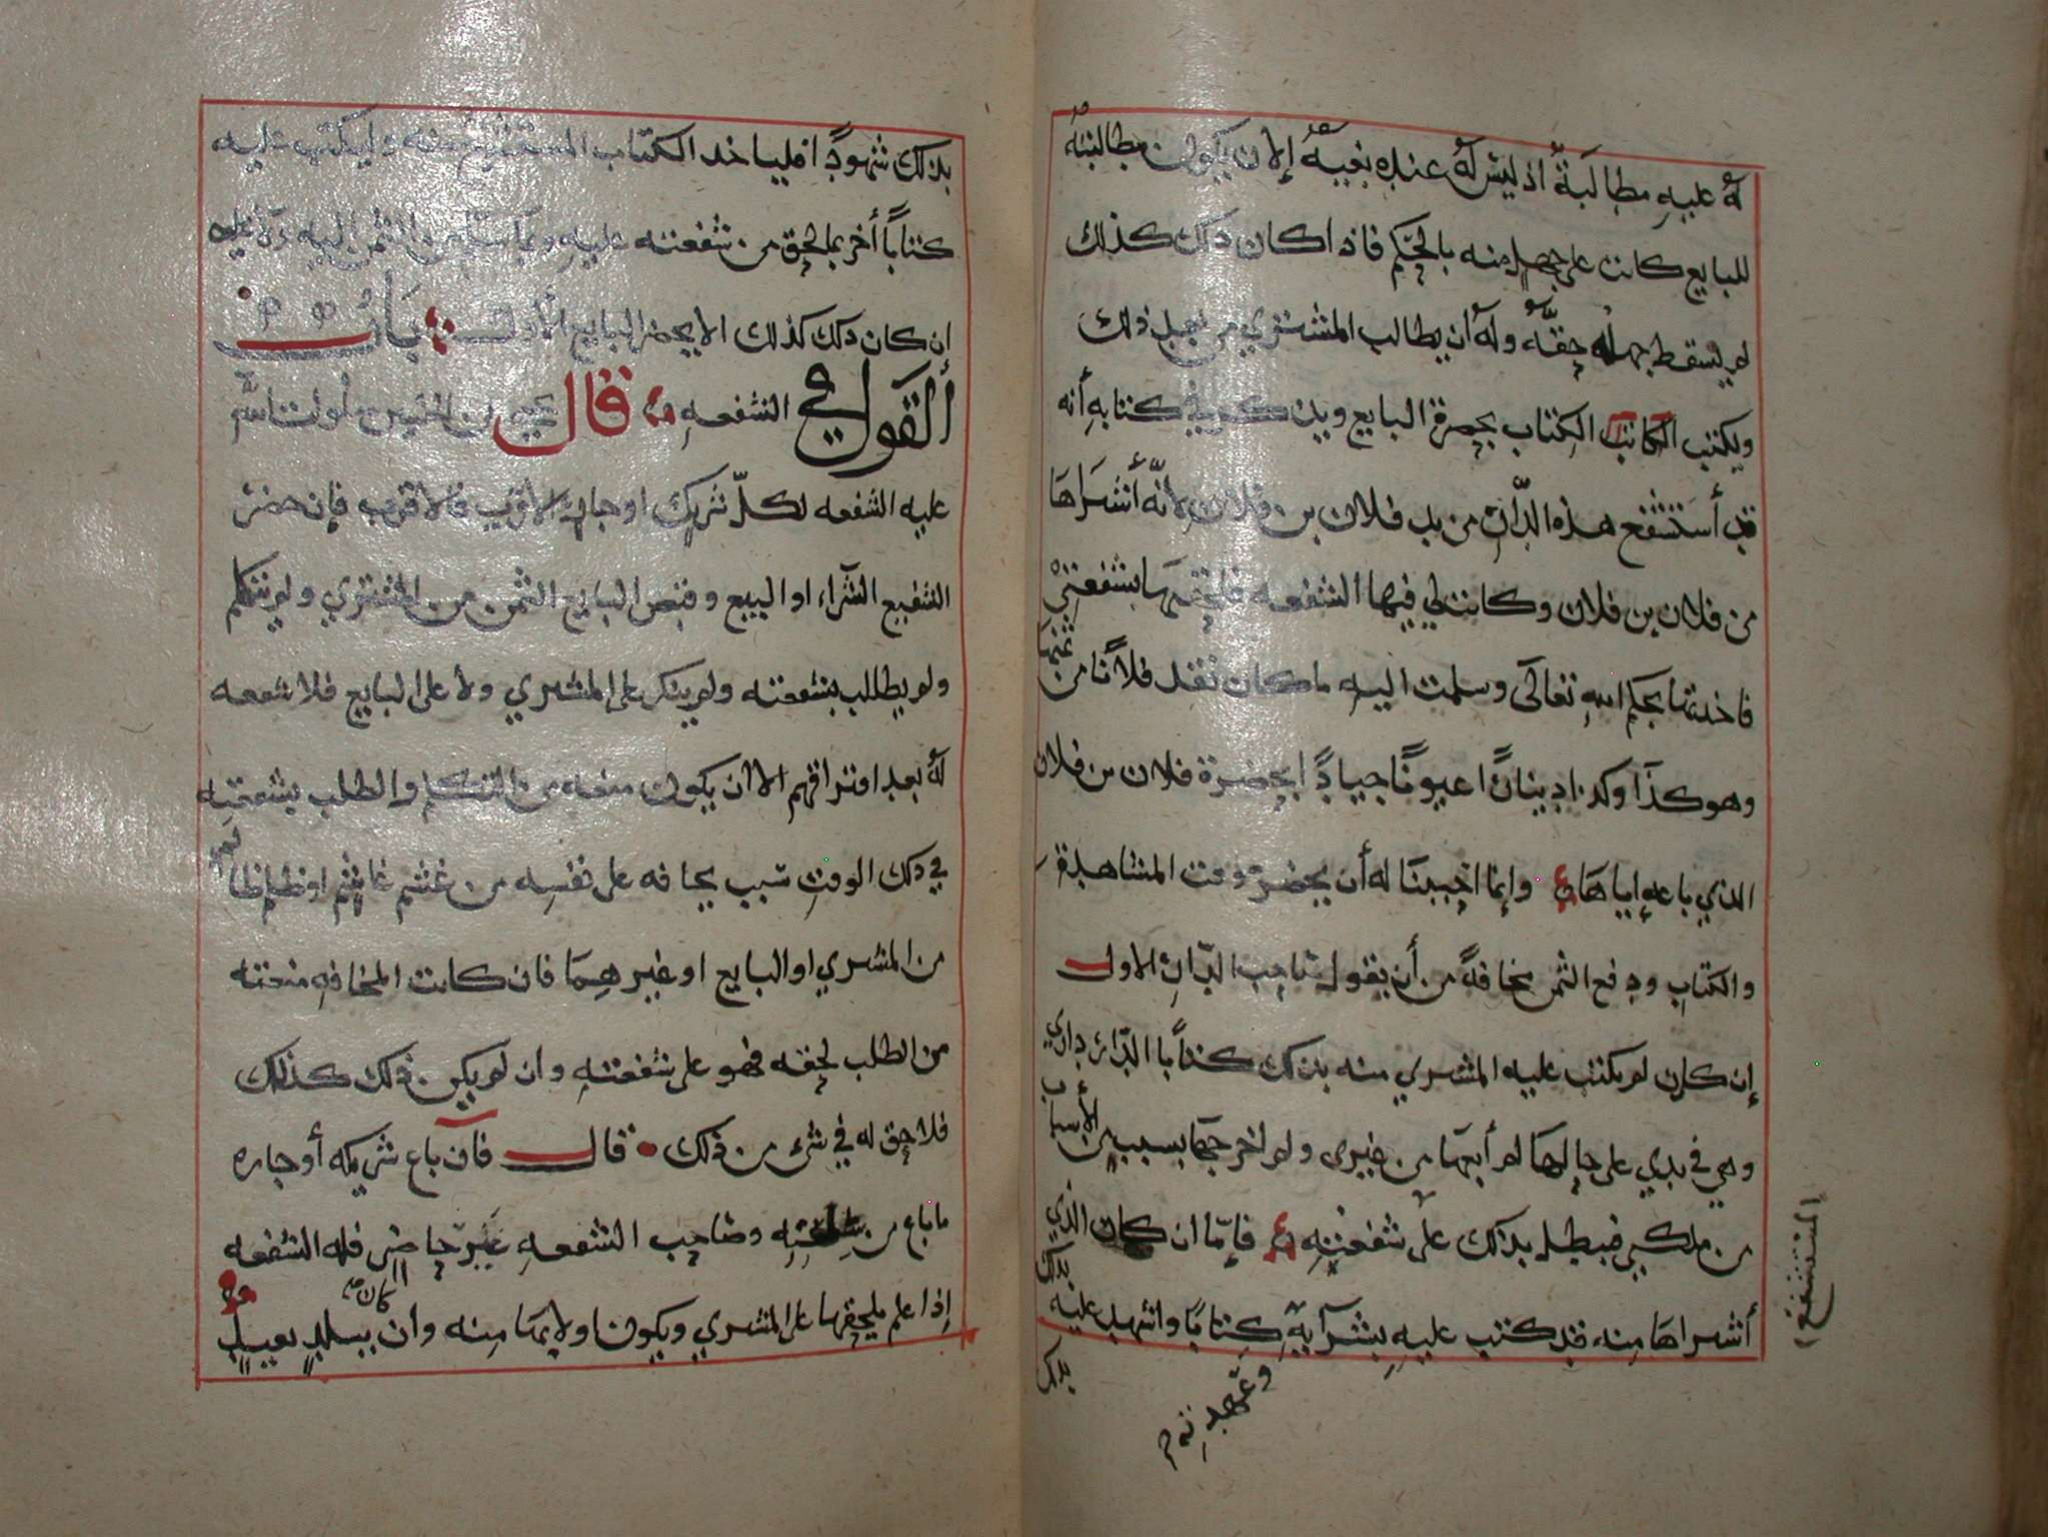 له عليه مطالبةٌ اذ ليس له عنده بغيه إلا ان يكون مطالبته
للبايع كانت على جهل منه بالحكم فاذا كان ذلك كذلك
لم يسقط جهله حقه وله أن يطالب المشتري من بعد ذلك
ويكتب الكاتب الكتاب بحضرة البايع ويذكر في كتابه أنه
قد أستشفع هذه الدّار من يد فلان بن فلان لأنّه أشراها
من فلان بن فلان وكانت لي فيها الشفعه بشفعتي
فاخذتها بحكم الله تعالى وسلمت اليه ما كان نقد فلاناً من ثمنها
وهو كذا وكذا ديناراً عيوناً جياداً بحضرة فلان بن فلان
الذي باعه إياها وإنما احببنا له أن يحضر وقت المشاهدة
والكتاب ودفع الثمن مخافةً من أن يقول صاحب الدّار الاول
إن كان لم يكتب عليه المشري منه بذلك كتاباً الدّار داري
وهي في يدي على حالها لم أبعها من غيري ولم اخرجها بسبب من الأسباب
من ملكي فيبطل بذلك على شفعته فإمّا ان كان الذي
أشراها منه قد كتب عليه بشرآيه كتاباً واشهد عليه
المستشفع
بذلك
بذلك شهوداً فليأخذ الكتاب المستشفع منه وليكتب عليه
كتاباً أخر بما لحق من شفعته عليه وبما سلم من الثمن اليه
إن كان ذلك كذلك الا يحضر البايع الأول بَابُ
القول في الشفعه قال يحيى بن الحسين صلوات الله
عليه الشفعه لكلّ شريك او جار الاقرب فالاقرب فإن حضر
الشفيع الشرآء او البيع وقبض البايع الثمن من المشتري ولم يتكلم
ولم يطالب بشفعته ولم ينكر على المشري ولا على البايع فلا شفعه
له بعد افتراقهم الا ان يكون منعه من التكلم والطلب بشفعته
في ذلك الوقت سبب يخافه على نفسه من غشم غاشم او ظلم ظالم
من المشري او البايع او غيرهما فان كانت المخافه منعته
من الطلب لحقه فهو على شفعته وان لم يكن ذلك كذلك
فلا حق له في شيء من ذلك قال فان باع شريكه أو جاره
ما باع من وصاحب الشفعه غير حاضر فله الشفعه
إذا علم يلحقها على المشري ويكون اولا بها منه وان كان ببلد بعيد